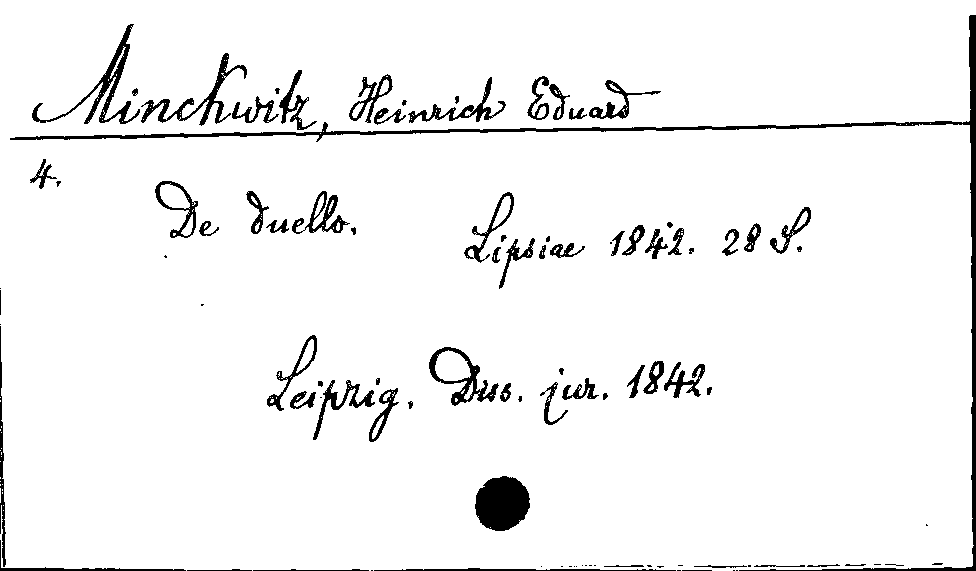 Minckwitz, Heinrich Eduard
4.
De duello. Lipsiae 1842. 28 S.
Leipzig. Diss. jur. 1842.